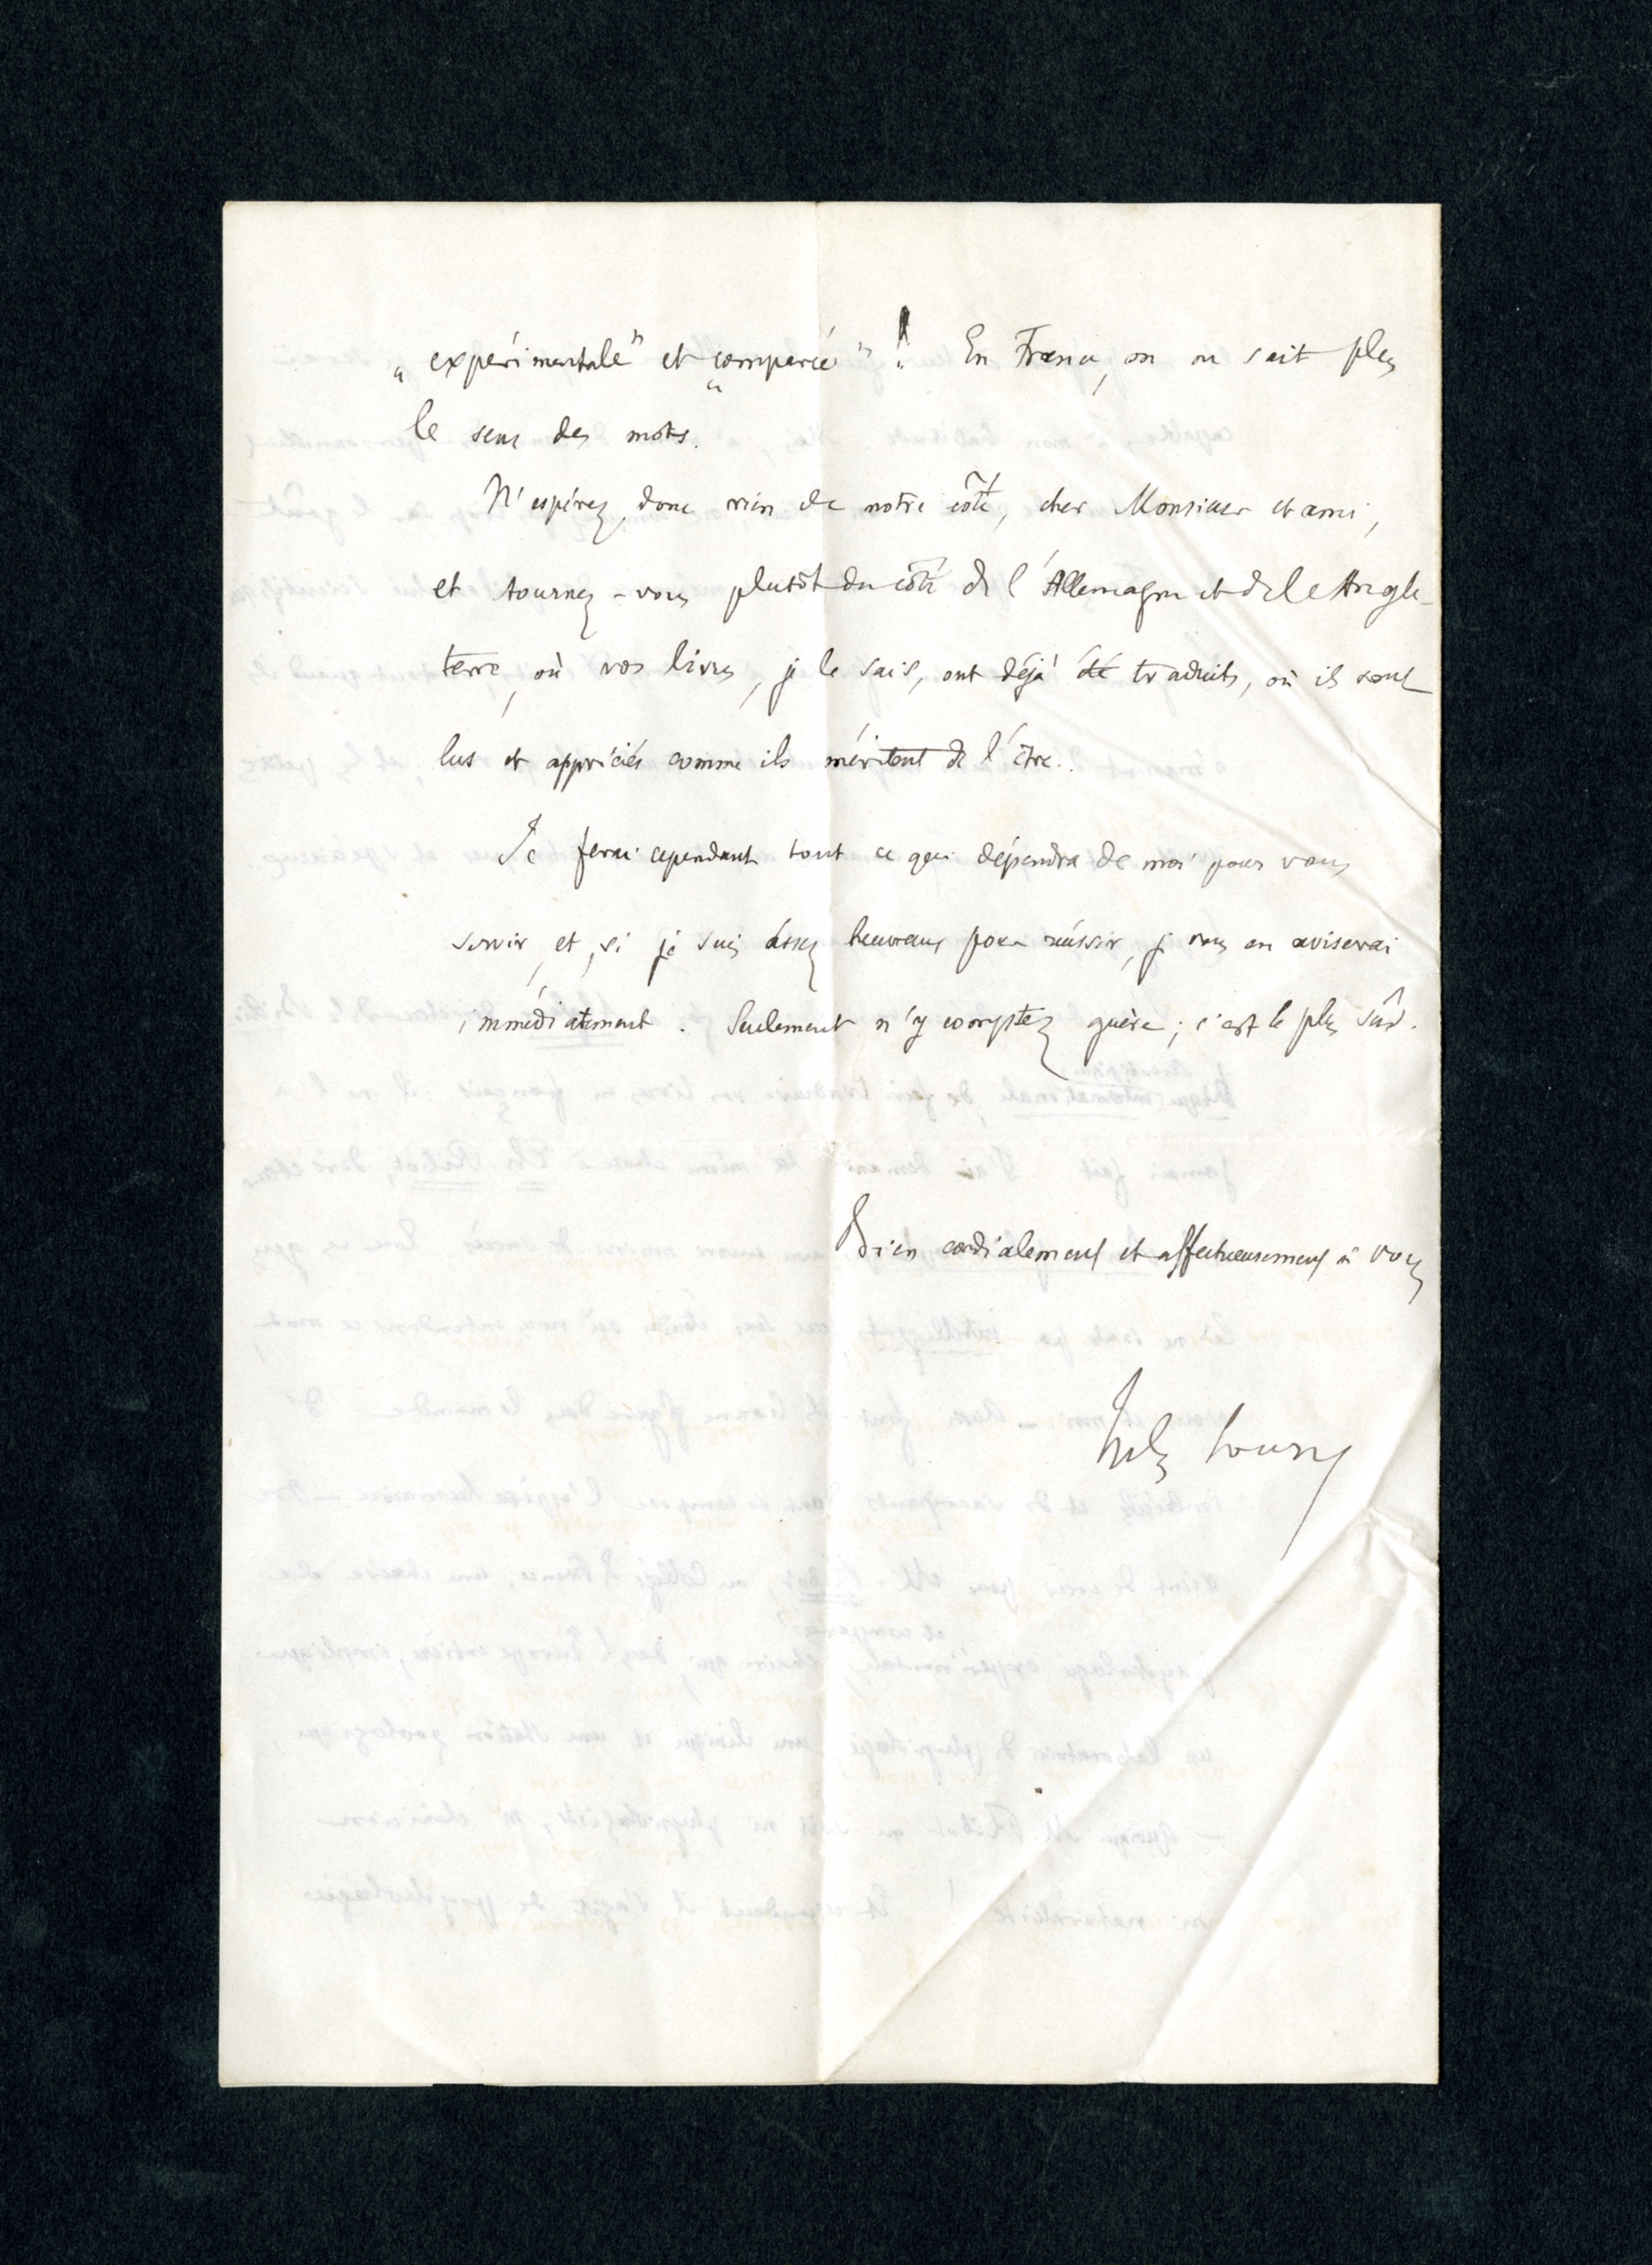 „expérimentale” et „comparée” ! En France, on ne sait plus
le sens des mots.
N'espérez donc rien de notre côté, cher Monsieur et ami,
et tournez-vous plutôt du côté de l'Allemagne et de l'Angle-
terre, où vos livres, je le sais, ont déjà été traduits, où ils sont
lus et appréciés comme ils méritent de l'être.
Je ferai cependant tout ce qui dépendra de moi pour vous
servir, et, si je suis assez heureux pour réussir, je vous en aviserai
immédiatement. Seulement n'y comptez guère; c'est le plus sûr.
Bien cordialement et affectueusement à vous
Jules Soury